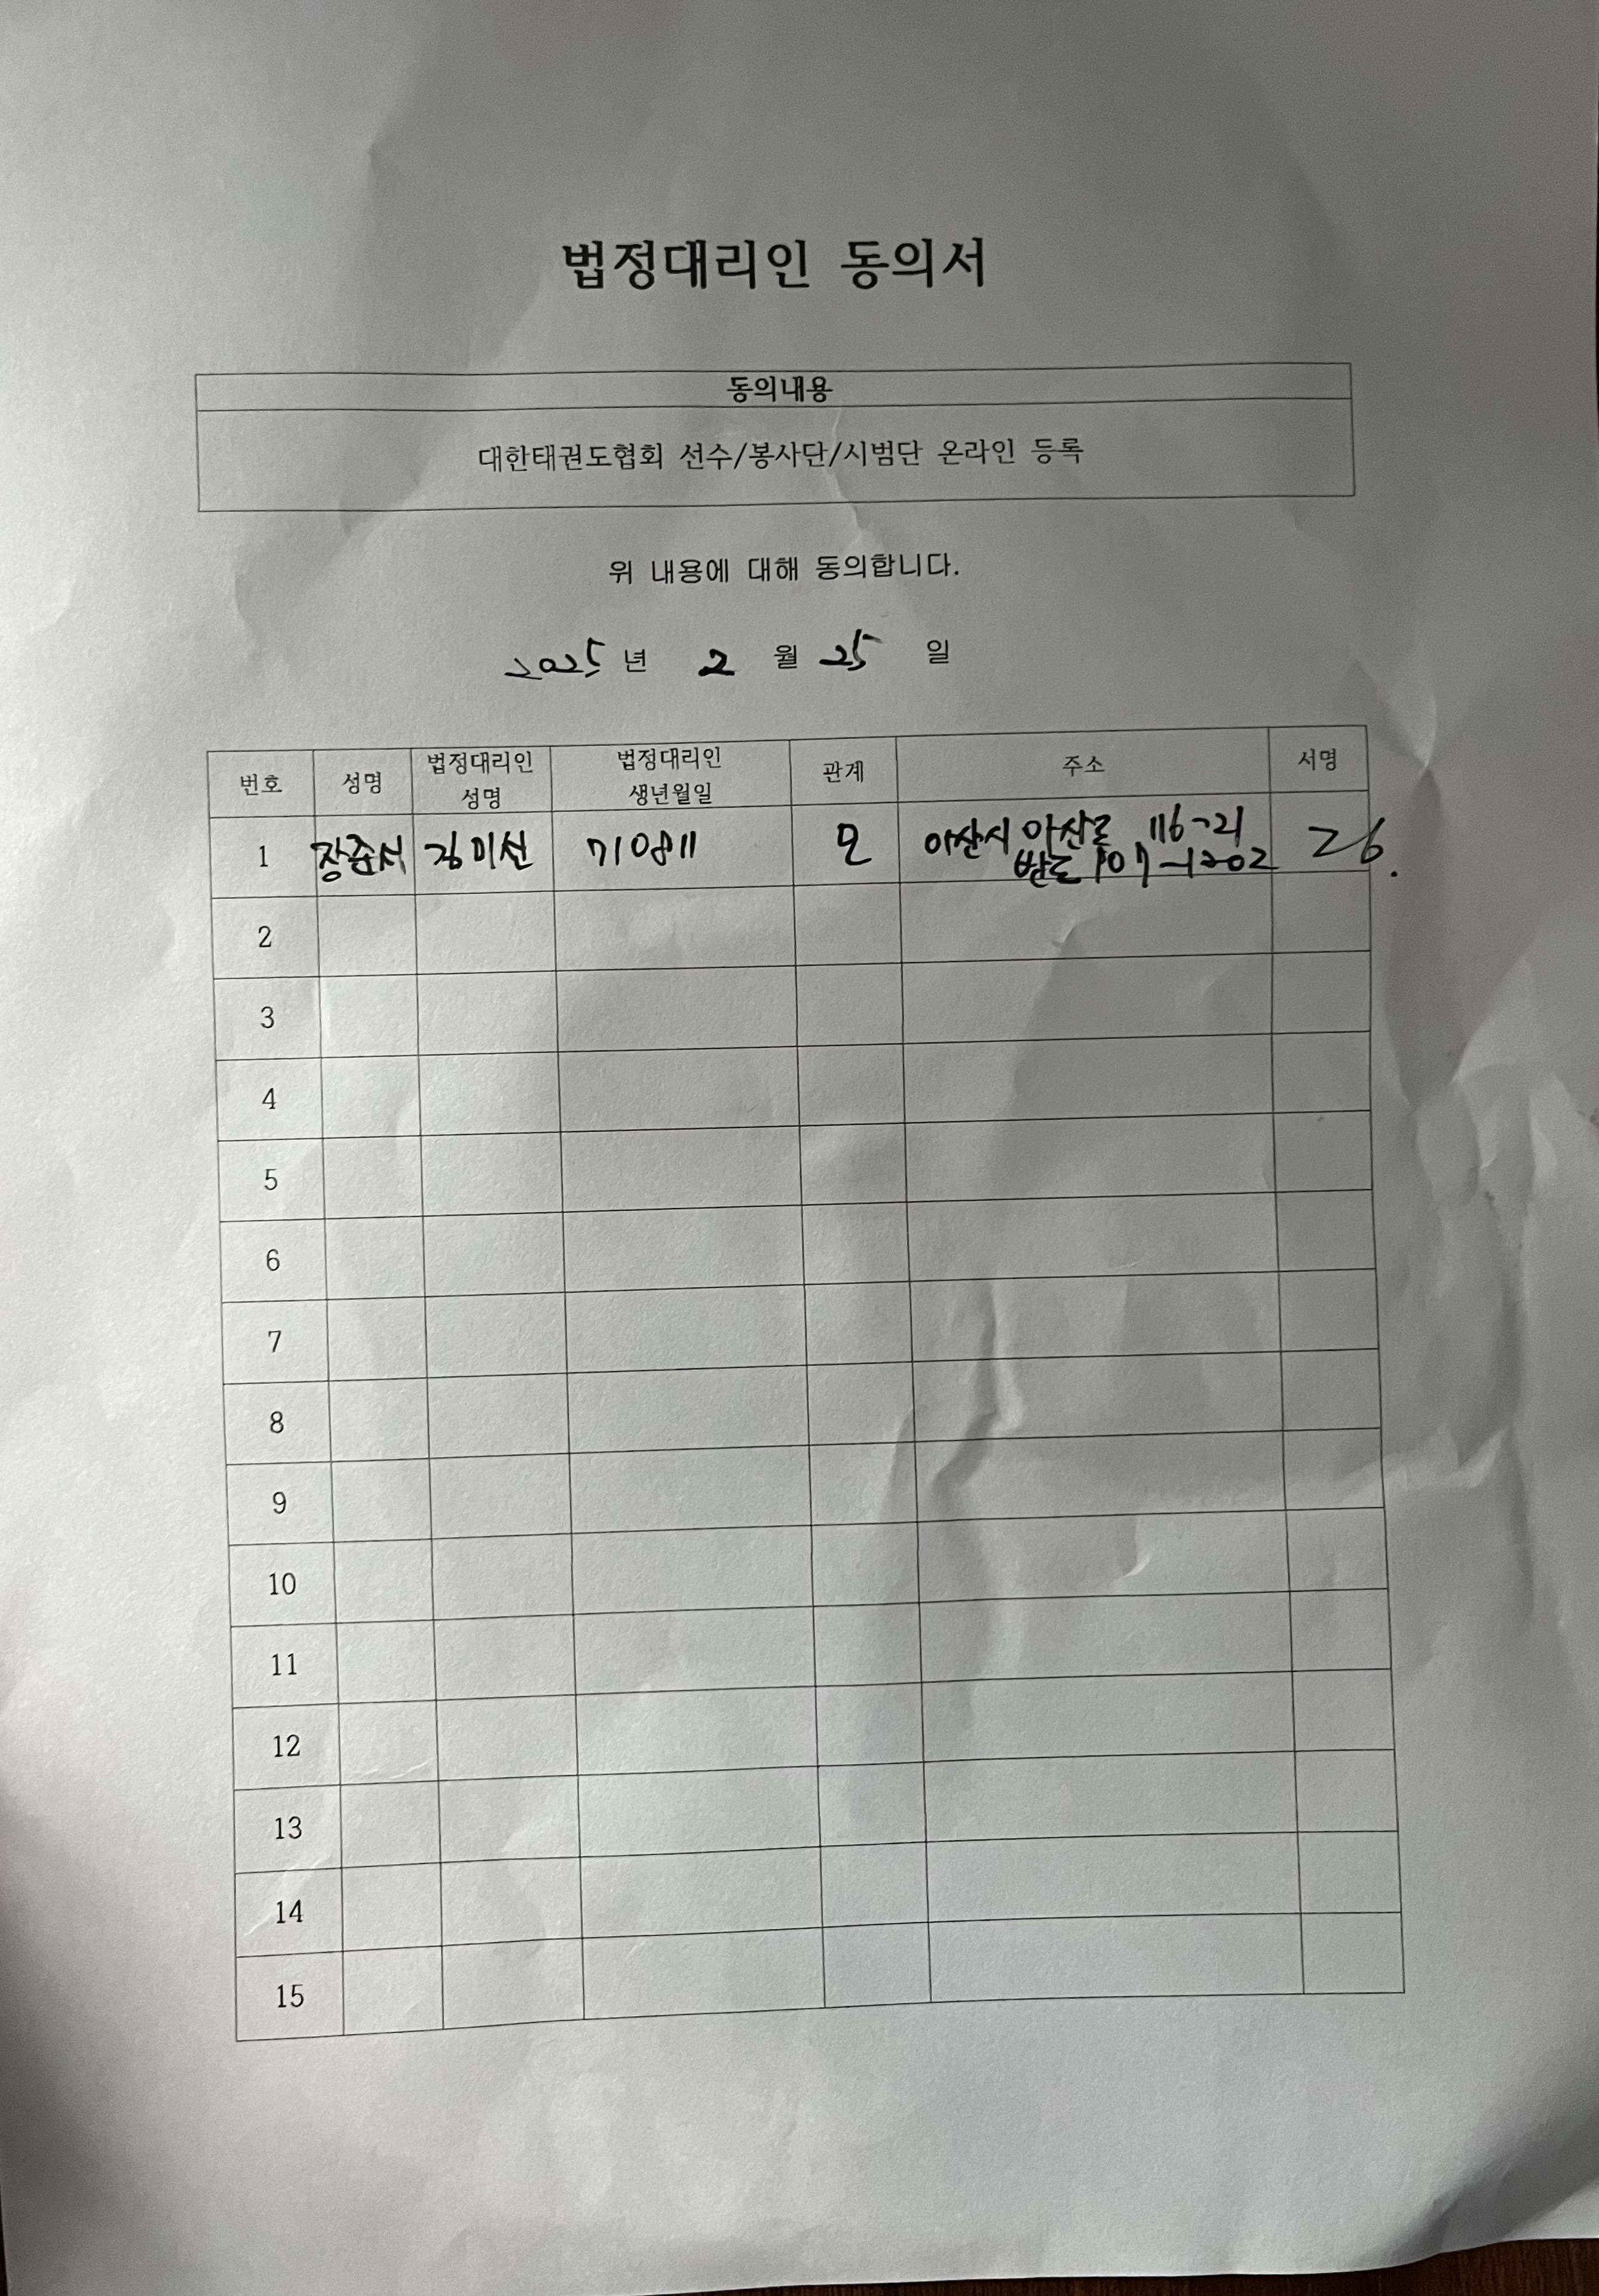 법정대리인 동의서
동의내용
대한태권도협회 선수/봉사단/시범단 온라인 등록
위 내용에 대해 동의합니다.
2025 년 2 월 25 일
번호 성명 법정대리인 성명 법정대리인 생년월일 관계 주소 서명
1 장준서 김미선 710811 모 아산시 아산로 116-21
107-1202
2
3
4
5
6
7
8
9
10
11
12
13
14
15